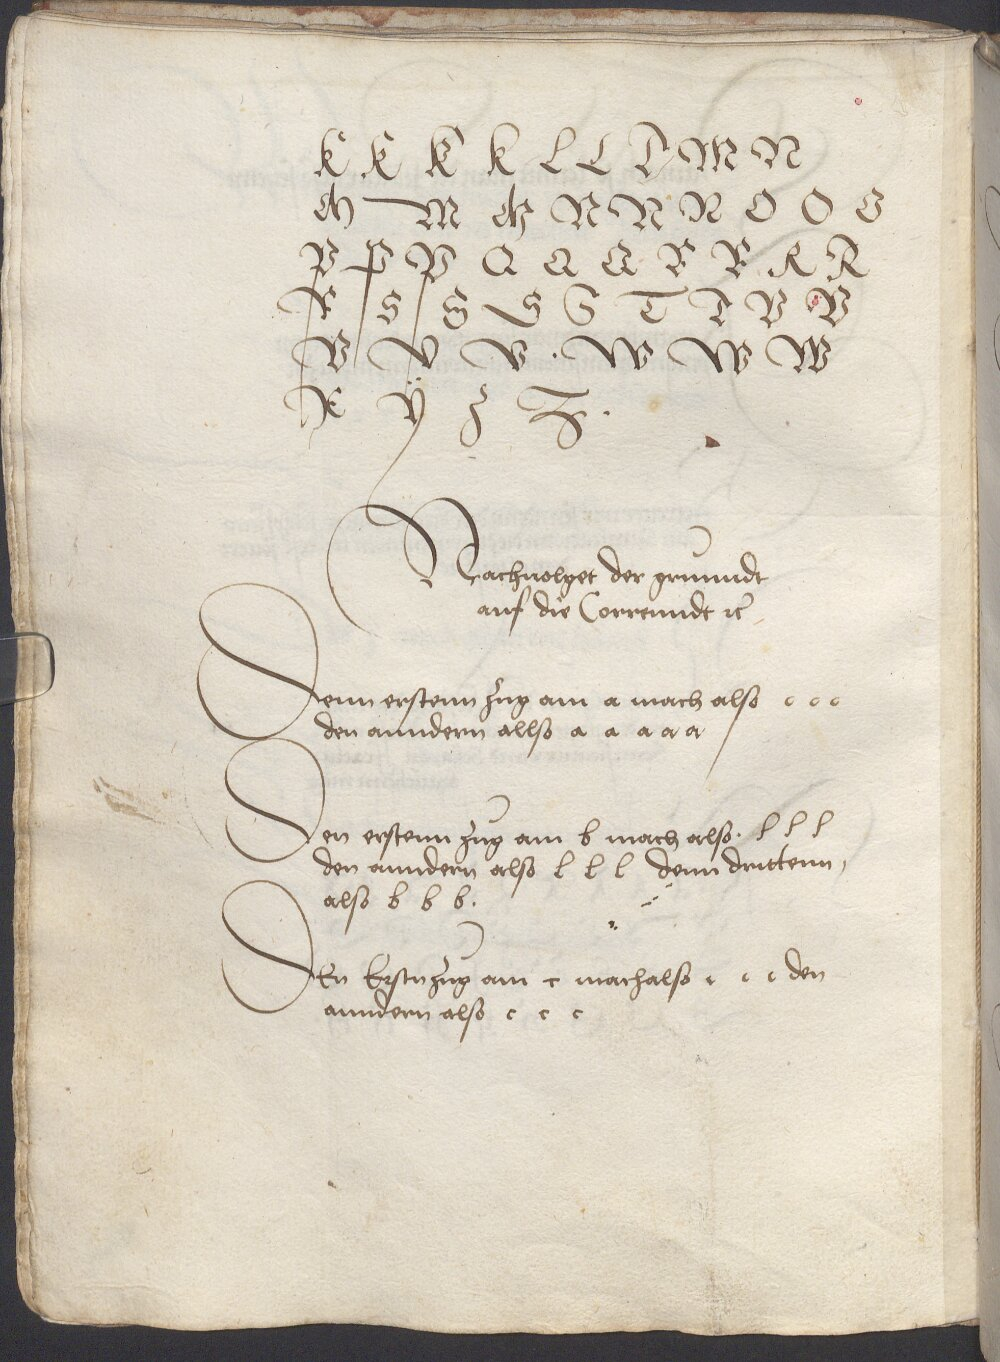 K K K K L L L M N
M M M N N N O O O
P P P Q Q Q R R R R
R S S S S T T V V
V V V . W W W
X Ÿ Z Z .
Nachuolget der grunndt
auf die Correnndt ꝛc
Denn erstenn zug am a mach also c c c
den anndern allso a a a a a
Den erstenn zug am b mach also . l l l
den anndern also l l l denn drittenn,
also b b b .
DEn Erstn zug am c mach also c c c den
anndern also c c c